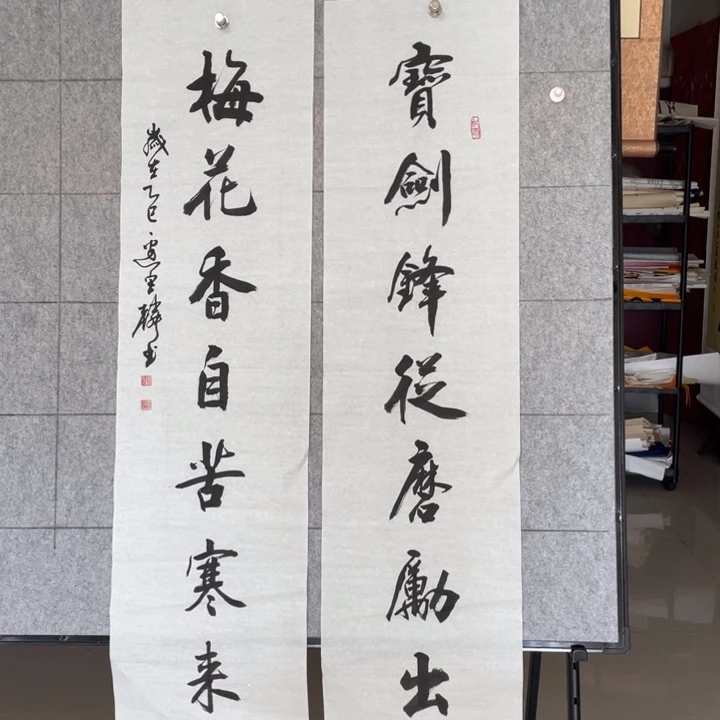 寶劍鋒從磨勵出
梅花香自苦寒来
歲在乙巳